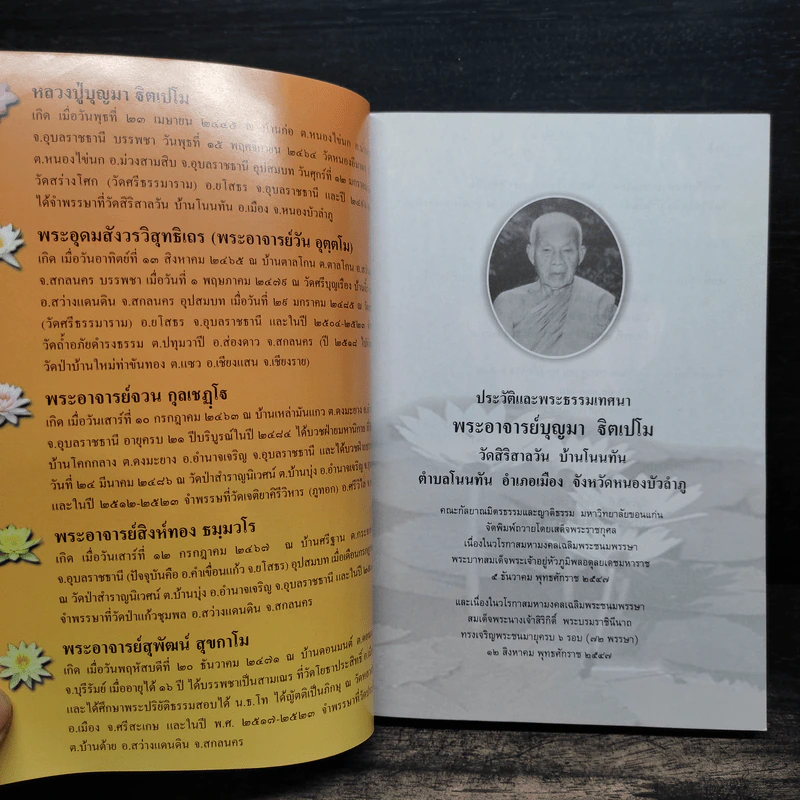 หลวงปู่บุญมา ฐิตเปโม
เกิด เมื่อวันพุธที่ ๒๓ เมษายน ๒๔๔๕ ณ บ้านก่อ ต.หนองไข่นก
จ.อุบลราชธานี บรรพชา วันพุธที่ ๑๕ พฤศจิกายน ๒๔๖๔
ต.หนองไข่นก อ.ม่วงสามสิบ จ.อุบลราชธานี อุปสมบท วันศุกร์ที่ ๑๒
วัดสร่างโศก (วัดศรีธรรมาราม) อ.ยโสธร จ.อุบลราชธานี และปี
ได้จำพรรษาที่วัดสิริสาลวัน บ้านโนนทัน อ.เมือง จ.หนองบัวลำภู
พระอุดมสังวรวิสุทธิเถร (พระอาจารย์วัน อุตฺตโม)
เกิด เมื่อวันอาทิตย์ที่ ๑๓ สิงหาคม ๒๔๖๕ ณ บ้านตาลโกน ต.ตาลโกน
จ.สกลนคร บรรพชา เมื่อวันที่ ๑ พฤษภาคม ๒๔๗๙ ณ วัดศรีบุญเรือง
อ.สว่างแดนดิน จ.สกลนคร อุปสมบท เมื่อวันที่ ๒๙ มกราคม ๒๔๘๕ ณ
(วัดศรีธรรมาราม) อ.ยโสธร จ.อุบลราชธานี และในปี ๒๕๐๔-๒๕๒๓
วัดถ้ำอภัยดำรงธรรม ต.ปทุมวาปี อ.ส่องดาว จ.สกลนคร (ปี ๒๕๑๘
วัดป่าบ้านใหม่ท่าขันทอง ต.แซว อ.เชียงแสน จ.เชียงราย)
พระอาจารย์จวน กุลเชฏฺโฐ
เกิด เมื่อวันเสาร์ที่ ๑๐ กรกฎาคม ๒๔๖๓ ณ บ้านเหล่ามันแกว ต.ดงมะยาง
จ.อุบลราชธานี อายุครบ ๒๑ ปีบริบูรณ์ในปี ๒๔๘๔ ได้บวชฝ่ายมหานิกาย
บ้านโคกกลาง ต.ดงมะยาง อ.อำนาจเจริญ จ.อุบลราชธานี และได้บวชฝ่าย
วันที่ ๒๔ มีนาคม ๒๔๘๖ ณ วัดป่าสำราญนิเวศน์ ต.บ้านบุ่ง อ.อำนาจเจริญ
และในปี ๒๕๑๒-๒๕๒๓ จำพรรษาที่วัดเจติยาคิรีวิหาร (ภูทอก) อ.ศรีวิไล
พระอาจารย์สิงห์ทอง ธมฺมวโร
เกิด เมื่อวันเสาร์ที่ ๑๒ กรกฎาคม ๒๔๖๗ ณ บ้านศรีฐาน
จ.อุบลราชธานี (ปัจจุบันคือ อ.คำเขื่อนแก้ว จ.ยโสธร) อุปสมบท เมื่อเดือน
ณ วัดป่าสำราญนิเวศน์ ต.บ้านบุ่ง อ.อำนาจเจริญ จ.อุบลราชธานี และในปี
จำพรรษาที่วัดป่าแก้วชุมพล อ.สว่างแดนดิน จ.สกลนคร
พระอาจารย์สุพัฒน์ สุขกาโม
เกิด เมื่อวันพฤหัสบดีที่ ๒๐ ธันวาคม ๒๔๗๑ ณ บ้านดอนมนต์
จ.บุรีรัมย์ เมื่ออายุได้ ๑๖ ปี ได้บรรพชาเป็นสามเณร ที่วัดโยธาประสิทธิ์
และได้ศึกษาพระปริยัติธรรมสอบได้ น.ธ.โท ได้ญัตติเป็นภิกษุ ณ
อ.เมือง จ.ศรีสะเกษ และในปี พ.ศ. ๒๕๑๗-๒๕๒๓ จำพรรษาที่
ต.บ้านต้าย อ.สว่างแดนดิน จ.สกลนคร
ประวัติและพระธรรมเทศนา
พระอาจารย์บุญมา ฐิตเปโม
วัดสิริสาลวัน บ้านโนนทัน
ตำบลโนนทัน อำเภอเมือง จังหวัดหนองบัวลำภู
คณะกัลยาณมิตรธรรมและญาติธรรม มหาวิทยาลัยขอนแก่น
จัดพิมพ์ถวายโดยเสด็จพระราชกุศล
เนื่องในวโรกาสมหามงคลเฉลิมพระชนมพรรษา
พระบาทสมเด็จพระเจ้าอยู่หัวภูมิพลอดุลยเดชมหาราช
๕ ธันวาคม พุทธศักราช ๒๕๔๗
และเนื่องในวโรกาสมหามงคลเฉลิมพระชนมพรรษา
สมเด็จพระนางเจ้าสิริกิติ์ พระบรมราชินีนาถ
ทรงเจริญพระชนมายุครบ ๖ รอบ (๗๒ พรรษา)
๑๒ สิงหาคม พุทธศักราช ๒๕๔๗